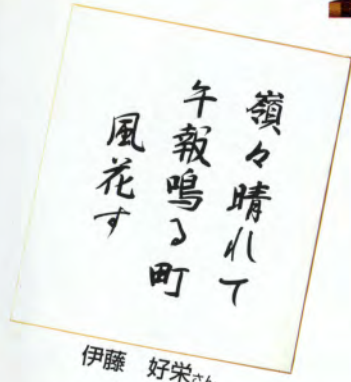 嶺々晴れて
午報鳴る町
風花す
伊藤 好栄さん